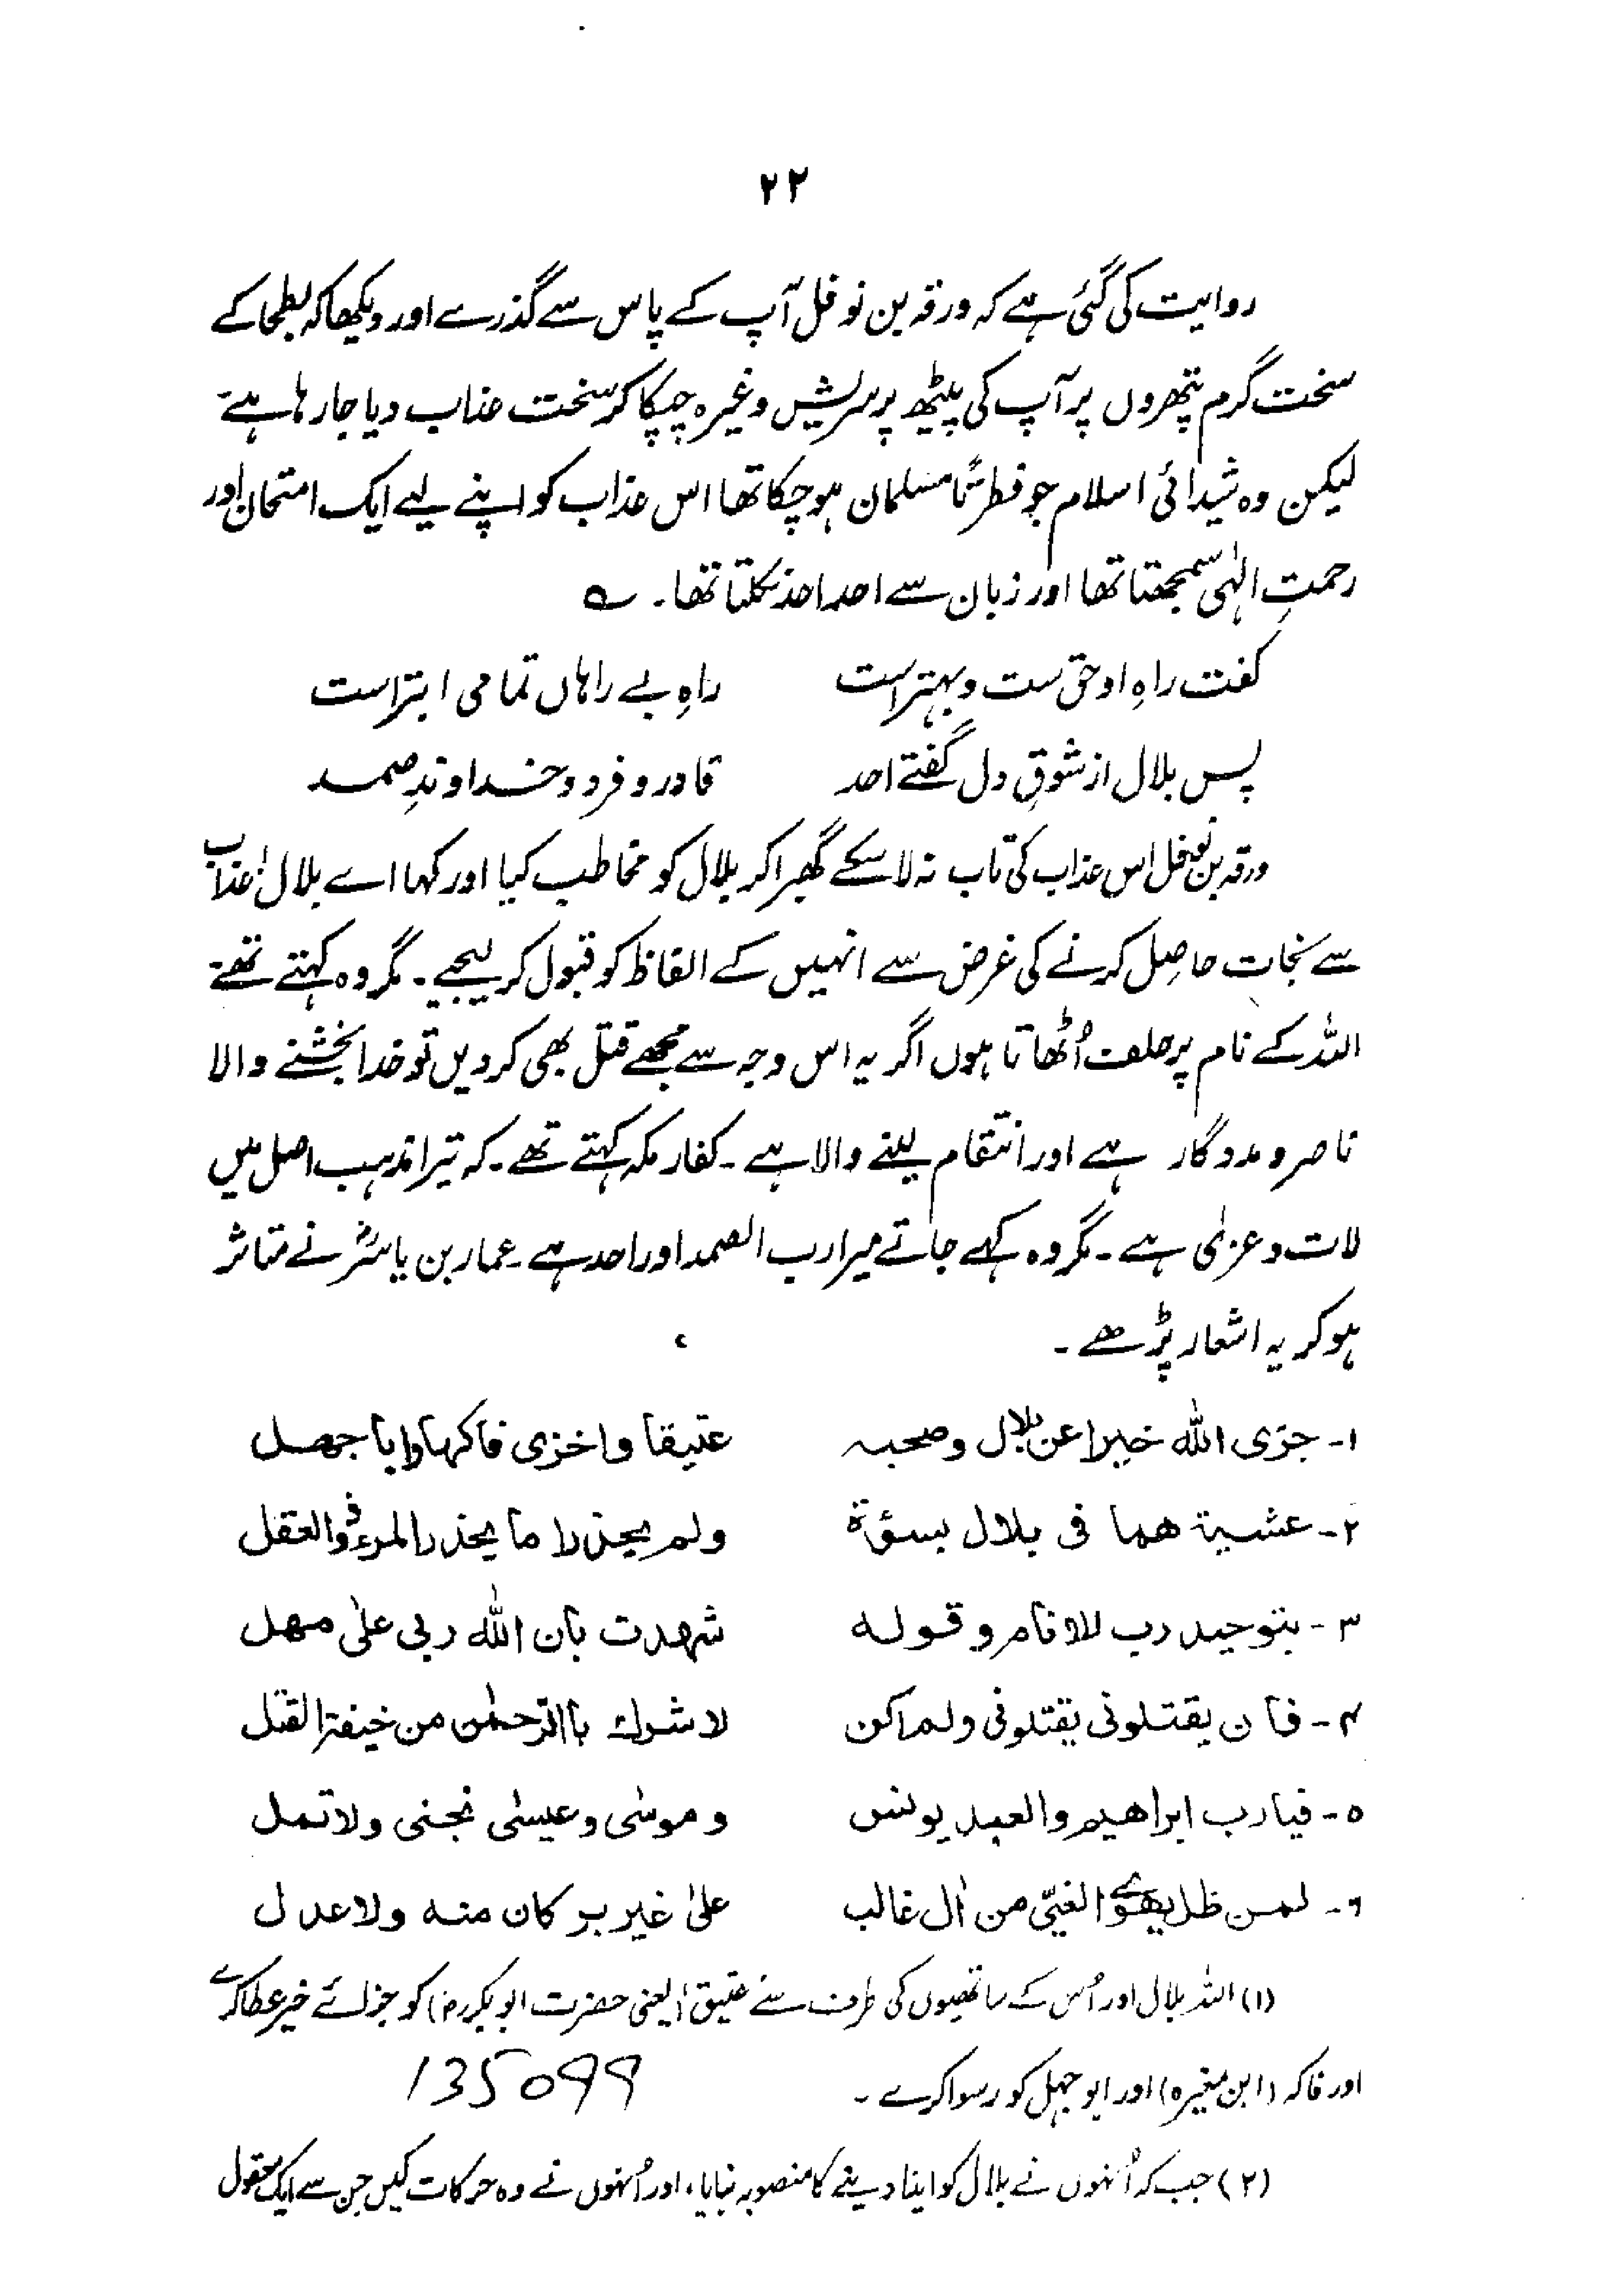 ۲۲
روایت کی گئی ہے کہ ورقہ بن نوفل آپ کے پاس سے گذرے اور دیکھا کہ بطحا کے
سخت گرم پتھروں پر آپ کی پیٹھ پر سریش وغیرہ چپکا کر سخت عذاب دیا جا رہا ہے
لیکن وہ شیدائی اسلام جو فطرتًا مسلمان ہو چکا تھا اس عذاب کو اپنے لیے ایک امتحان اور
رحمتِ الٰہی سمجھتا تھا اور زبان سے احد احد نکلتا تھا۔ ؎
گفت راہِ او حق ست و بہتر است راہِ بے راہاں تمامی ابتر است
پس بلال از شوقِ دل گفتے احد قادر و فرد و خداوندِ صمد
ورقہ بن نوفل اس عذاب کی تاب نہ لا سکے گھبرا کر بلال کو مخاطب کیا اور کہا اے بلال! عذاب
سے نجات حاصل کرنے کی غرض سے انہیں کے الفاظ کو قبول کر لیجیے۔ مگر وہ کہتے تھے
اللہ کے نام پر حلف اُٹھاتا ہوں اگر یہ اس وجہ سے مجھے قتل بھی کر دیں تو خدا بخشنے والا
ناصر و مددگار ہے اور انتقام لینے والا ہے۔ کفار مکہ کہتے تھے۔ کہ تیرا مذہب اصل میں
لات و عزیٰ ہے۔ مگر وہ کہے جاتے میرا رب الصمد اور احد ہے۔ عمار بن یاسرؓ نے متاثر
ہو کر یہ اشعار پڑھے۔
۱۔ جزی اللہ خیرا عن بلال و صحبہ عتیقا و اخزی فاکھا و ابا جھل
۲۔ عشیۃ ھما فی بلال بسؤۃ ولم یحذرا ما یحذر المرء ذو العقل
۳۔ بتوحید رب للانام و قولہ شھدت بان اللہ ربی علیٰ مھل
۴۔ فان یقتلونی یقتلونی ولم اکن لاشرک باالرحمٰن من خیفۃ القتل
۵۔ فیا رب ابراھیم والعبد یونس و موسٰی و عیسٰی نجنی ولا تمل
۶۔ لمن ظل یھوے الغیّ من اٰل غالب علیٰ غیر بر کان منہ ولا عدل
(۱) اللہ بلال اور اُس کے ساتھیوں کی طرف سے عتیق (یعنی حضرت ابوبکرؓ) کو جزائے خیر عطا کرے
اور فاکہ (ابن مغیرہ) اور ابو جہل کو رسوا کرے۔
135099
(۲) جب کہ اُنہوں نے بلال کو ایذا دینے کا منصوبہ بنایا، اور اُنہوں نے وہ حرکات کیں جن سے ایک معقول